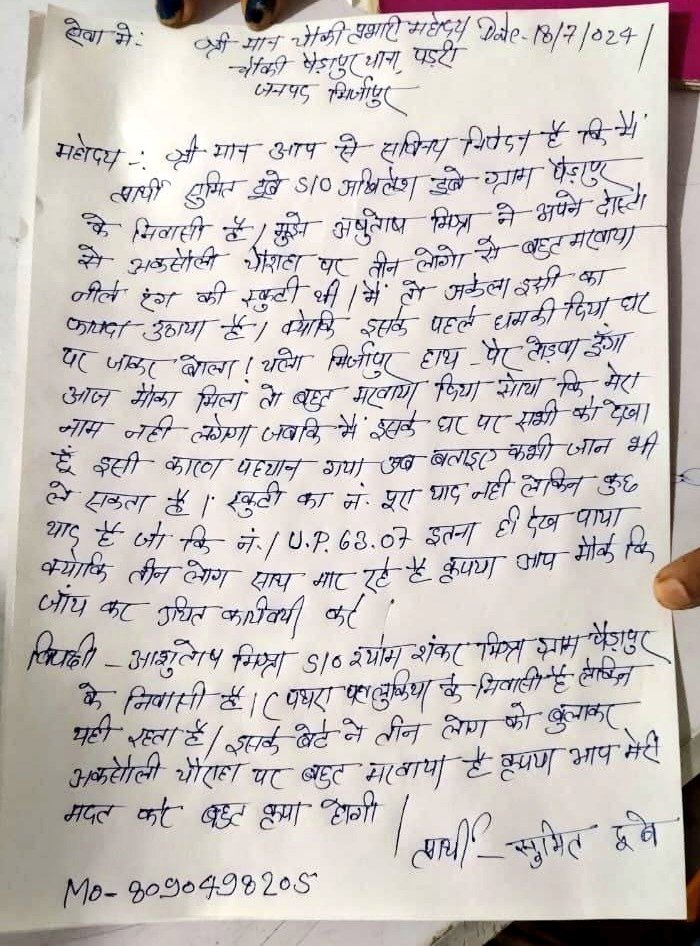 सेवा में: श्री मान चौकी प्रभारी महोदय Date- 18/7/024/
चौकी पैड़ापुर थाना, पड़री
जनपद मिर्जापुर
महोदय -: श्री मान आप से सविनय निवेदन है कि मैं
प्रार्थी सुमित दूबे S/O अखिलेश दूबे ग्राम पैड़ापुर
के निवासी है / मुझे अषुतोष मिश्रा ने अपने दोस्तो
से अकसौली चौराहा पर तीन लोगो से बहुत मरवाया
नीले रंग की स्कुटी थी / मैं तो अकेला इसी का
फायदा उठाया है / क्योकि इसके पहले धमकी दिया घर
पर जाकर बोला ! चलो मिर्जापुर हाथ - पैर तोड़वा दूंगा
आज मौका मिला तो बहुत मरवाया दिया सोचा कि मेरा
नाम नही लगेगा जबकि मैं इसके घर पर सभी को देखा
हूँ इसी कारण पहचान गया अब बताइए कभी जान भी
ले सकता है / स्कुटी का नं. पूरा याद नही लेकिन कुछ
याद है जो कि नं. / U.P. 63.07 इतना ही देख पाया
क्योकि तीन लोग साथ मार रहे है कृपया आप मौके कि
जाँच कर उचित कार्यवयी करें /
विपक्षी - आशुतोष मिश्रा S/O श्याम शंकर मिश्रा ग्राम पैड़ापुर
के निवासी है / ( पथरा के निवासी है लेकिन
यही रहता है / इसके बेटे ने तीन लोग को बुलाकर
अकसौली चौराहा पर बहुत मरवाया है कृपया आप मेरी
मदत करे बहुत कृपा होगी /
प्रार्थी - सुमित दूबे
Mo- 8090498205